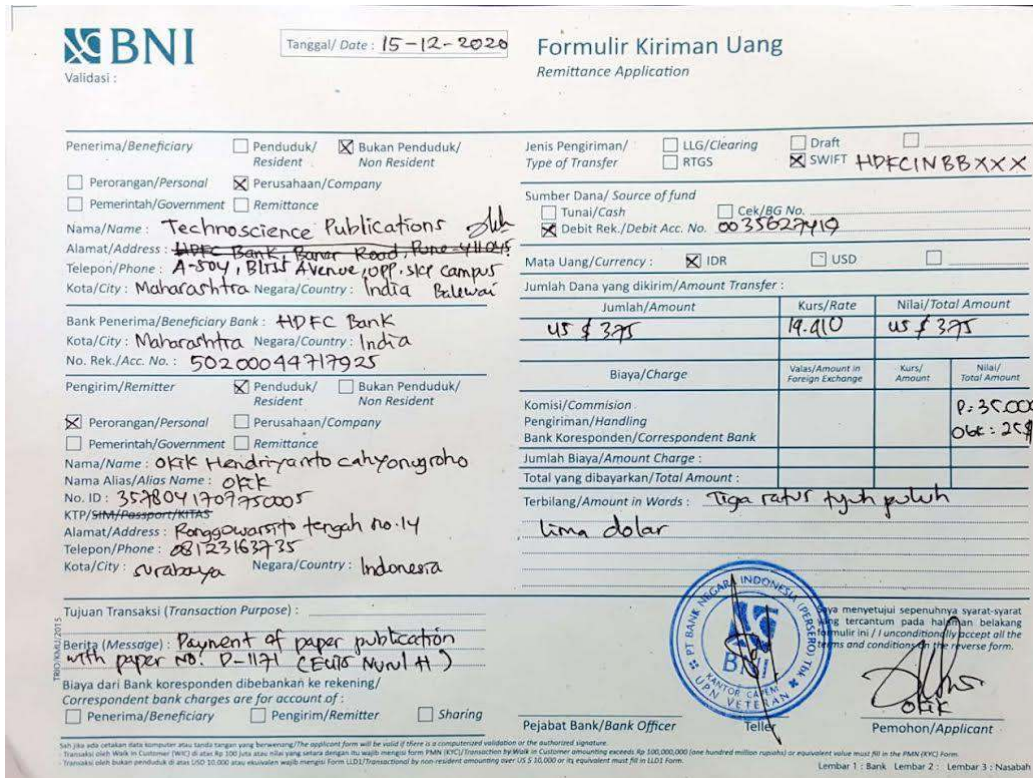 BNI
Validasi :
Tanggal/ Date : 15-12-2020
Formulir Kiriman Uang
Remittance Application
Penerima/Beneficiary Penduduk/ Resident Bukan Penduduk/ Non Resident
Perorangan/Personal Perusahaan/Company
Pemerintah/Government Remittance
Nama/Name : Technoscience Publications
Alamat/Address : HDFC Bank, Baner Road, Pune-411045
Telepon/Phone : A-504, Bliss Avenue, opp. skp campus
Kota/City : Maharashtra Negara/Country : India Balewai
Bank Penerima/Beneficiary Bank : HDFC Bank
Kota/City : Maharashtra Negara/Country : India
No. Rek./Acc. No. : 50200044717925
Pengirim/Remitter Penduduk/ Resident Bukan Penduduk/ Non Resident
Perorangan/Personal Perusahaan/Company
Pemerintah/Government Remittance
Nama/Name : Okik Hendriyanto cahyonugroho
Nama Alias/Alias Name : Okik
No. ID : 3578041707750005
KTP/SIM/Passport/KITAS
Alamat/Address : Ronggowarsito tengah no.14
Telepon/Phone : 08123163735
Kota/City : surabaya Negara/Country : Indonesia
Tujuan Transaksi (Transaction Purpose) :
Berita (Message) : Payment of paper publication
with paper NO. D-1171 (Euis Nurul H)
Biaya dari Bank koresponden dibebankan ke rekening/
Correspondent bank charges are for account of :
Penerima/Beneficiary Pengirim/Remitter Sharing
TRIO/KMU/2015
Jenis Pengiriman/ LLG/Clearing Draft
Type of Transfer RTGS SWIFT HDFCINBBXXX
Sumber Dana/ Source of fund
Tunai/Cash Cek/BG No.
Debit Rek./Debit Acc. No. 0035627419
Mata Uang/Currency : IDR USD
Jumlah Dana yang dikirim/Amount Transfer :
Jumlah/Amount Kurs/Rate Nilai/Total Amount
US $ 375 14.410 US $ 375
Biaya/Charge Valas/Amount in Foreign Exchange Kurs/ Amount Nilai/ Total Amount
Komisi/Commision P: 35.000
Pengiriman/Handling
Bank Koresponden/Correspondent Bank : 25$
Jumlah Biaya/Amount Charge :
Total yang dibayarkan/Total Amount :
Terbilang/Amount in Words : Tiga ratus tujuh puluh
lima dolar
PT BANK NEGARA INDONESIA (PERSERO) Tbk
BNI
KANTOR CAPEM
UPN VETERAN
Saya menyetujui sepenuhnya syarat-syarat
yang tercantum pada halaman belakang
formulir ini / I unconditionally accept all the
terms and conditions on the reverse form.
OKIK
Pejabat Bank/Bank Officer Teller Pemohon/Applicant
Sah jika ada cetakan data komputer atau tanda tangan yang berwenang/The applicant form will be valid if there is a computerized validation or the authorized signature.
- Transaksi oleh Walk in Customer (WIC) di atas Rp 100 juta atau nilai yang setara dengan itu wajib mengisi form PMN (KYC)/Transaction by Walk in Customer amounting exceeds Rp 100,000,000 (one hundred million rupiahs) or equivalent value must fill in the PMN (KYC) Form.
- Transaksi oleh bukan penduduk di atas USD 10.000 atau ekuivalen wajib mengisi Form LLD1/Transactional by non resident amounting over US $ 10,000 or its equivalent must fill in LLD1 Form.
Lembar 1 : Bank Lembar 2 : Lembar 3 : Nasabah